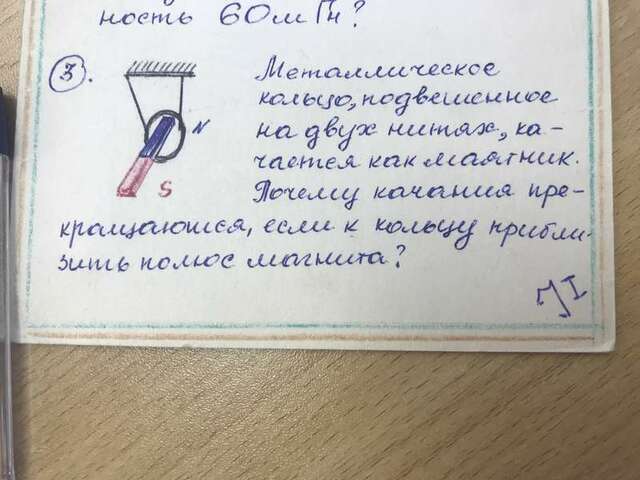 ность 60 мГн?
3.
Металлическое
кольцо, подвешенное
на двух нитях, ка-
чается как маятник.
Почему качания пре-
кращаются, если к кольцу прибли-
зить полюс магнита?
N
S